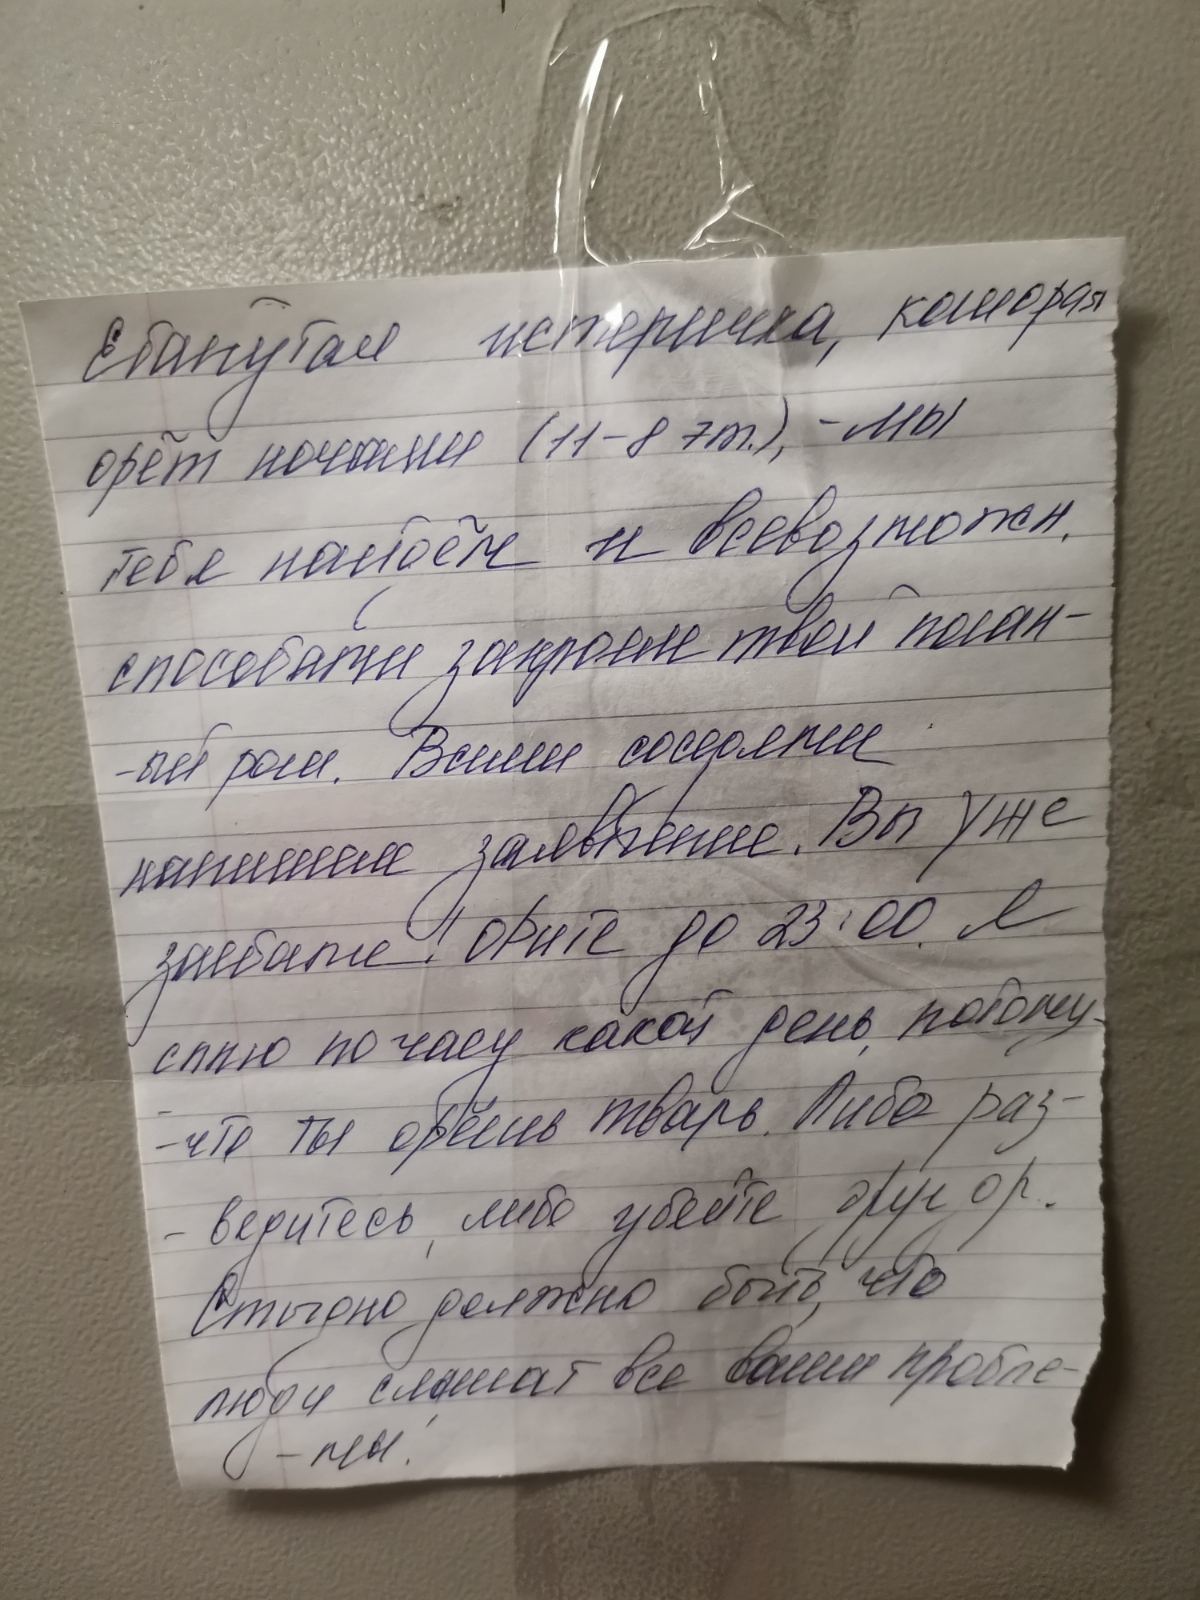 Ебанутая истеричка, которая
орёт ночами (11-8 эт.), - мы
тебя найдём и всевозможн.
способами закроем твой поган-
-ый рот. Всеми соседями
напишем заявление. Вы уже
заебали! Орите до 23:00. Я
сплю по часу какой день, потому-
-что ты орёшь тварь. Либо раз-
- ведитесь, либо убейте друг др..
Стыдно должно быть, что
люди слышат все ваши пробле-
- мы!